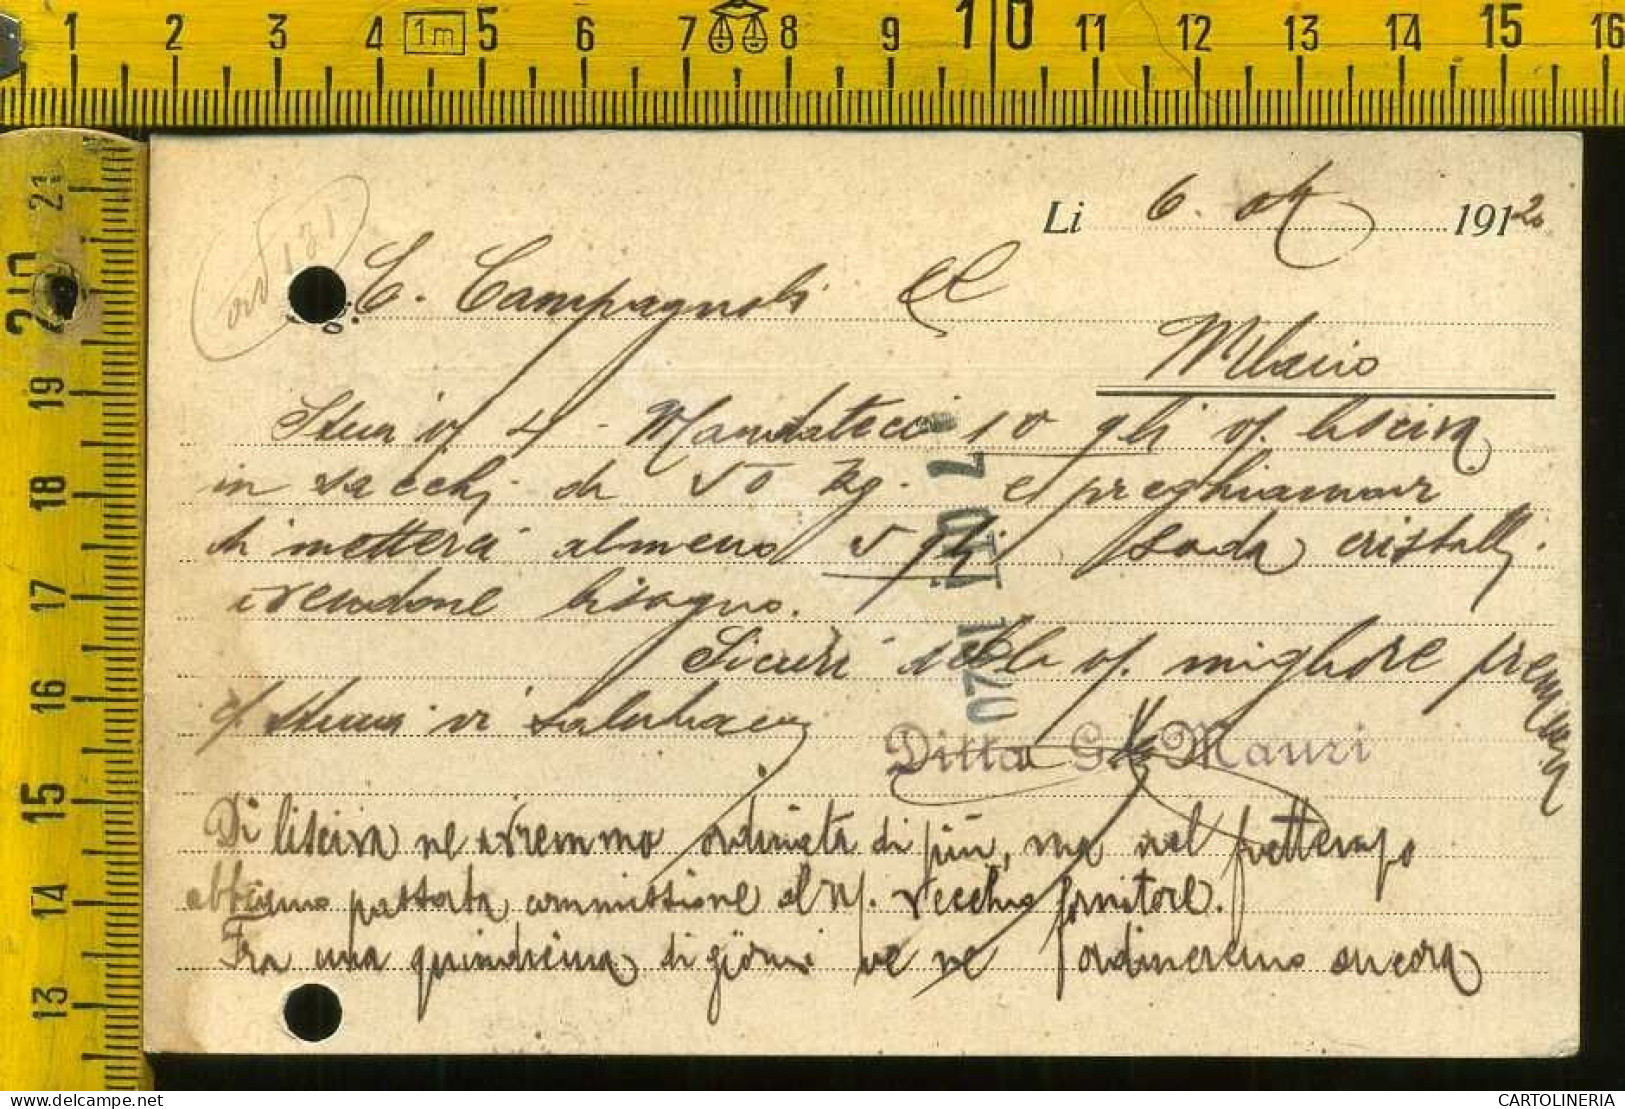 1 2 3 4 1m 5 6 7 8 9 10 11 12 13 14 15 16
21
20
19
18
17
16
15
14
13
ord 131
Li 6. ott 1912 20
C. Campagnoli
Milano
4 - Mandateci 10 qli vs. lisciva
in sacchi da 50 kg. e preghiamovi
di metterci almeno 5 qli soda cristalli.
avendone bisogno.
Sicuri della vs. migliore premura
vi salutiamo
Ditta G. Mauri
7 OTT 1920
Di lisciva ne avremmo ordinata di più, ma nel frattempo
abbiamo passata commissione al ns. vecchio fornitore.
Fra una quindicina di giorni ve ne ordineremo ancora
CARTOLINERIA
delcampe.net